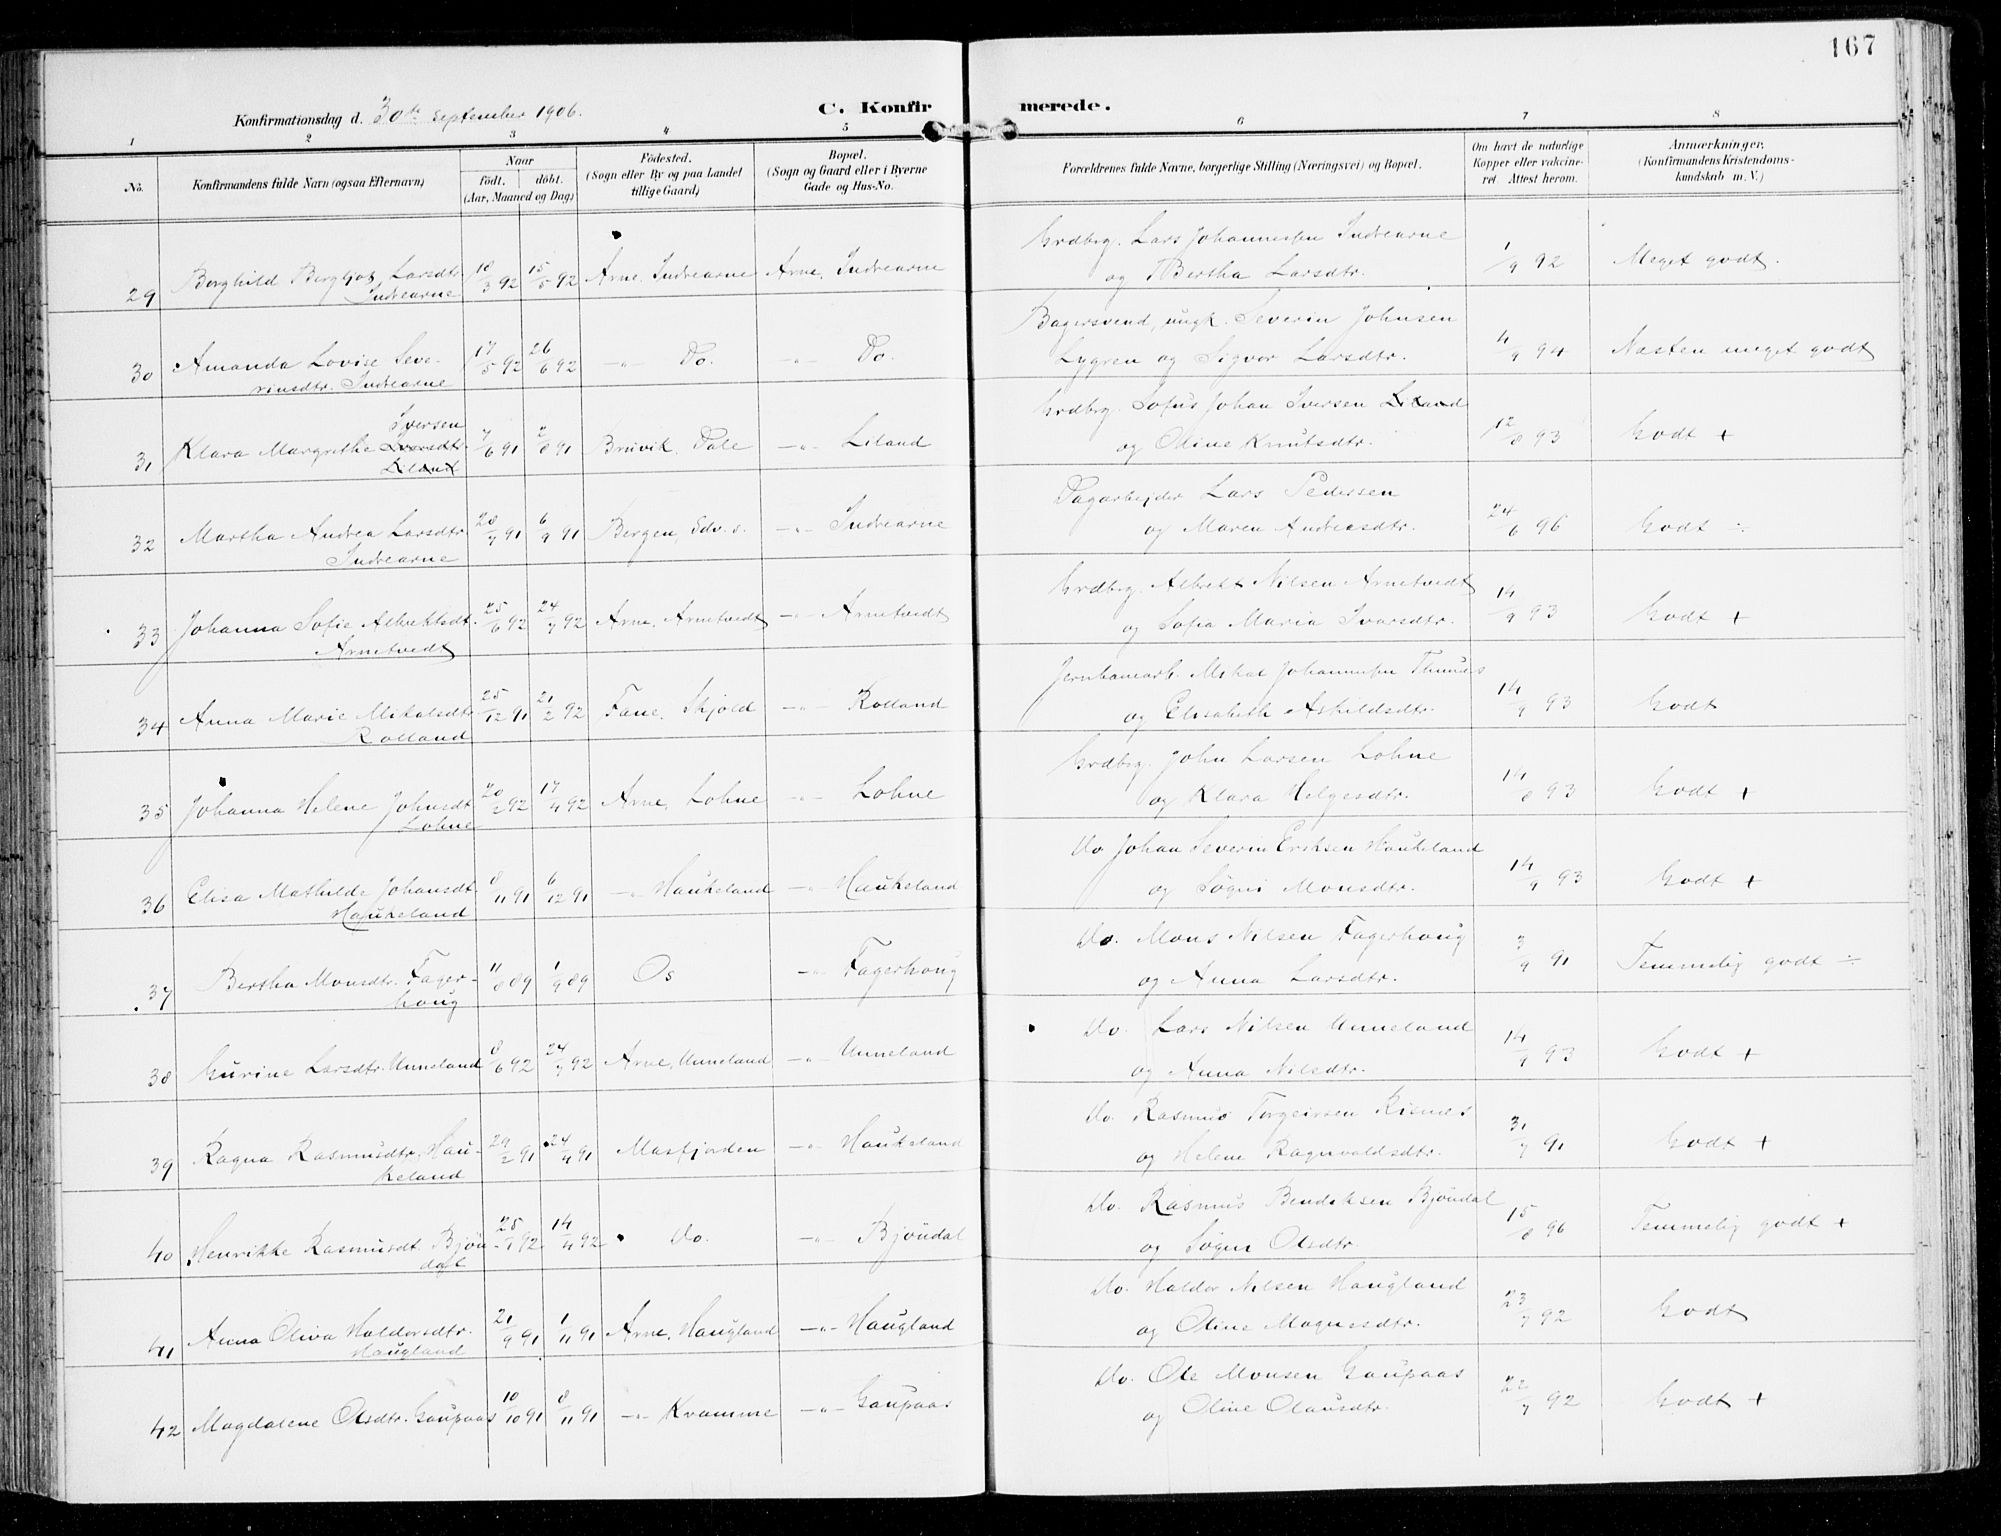 167
Konfirmationsdag d. 30te September 1906.
C. Konfirmerede.
1 2 3 4 5 6 7 8
No.
Konfirmandens fulde Navn (ogsaa Efternavn)
Naar
født. døbt.
(Aar, Maaned og Dag)
Fødested.
(Sogn eller By og paa Landet
tillige Gaard)
Bopæl.
(Sogn og Gaard eller i Byerne
Gade og Hus-No.
Forældrenes fulde Navne, borgerlige Stilling (Næringsvei) og Bopæl.
Om havt de naturlige
Kopper eller vaccine-
ret. Attest herom.
Anmærkninger.
(Konfirmandens Kristendoms-
kundskab m. V.)
29 Borghild Bergljot Larsdtr. 18/3 92 15/5 92 Arne, Indrearne Arne, Indrearne Grdbrg. Lars Johannessen Indrearne 1/9 92 Meget godt.
Indrearne og Bertha Larsdtr.
30 Amanda Lovise Seve- 17/5 92 26/6 92 -"- Do. -"- Do. Bagersvend, ungk. Severin Johnsen 4/9 94 Næsten meget godt
rinsdtr. Indrearne Lygren og Sigvor Larsdtr.
Iversen
31 Klara Margrethe Iversdtr. 7/6 91 2/8 91 Bruvik, Dale -"- Liland Grdbrg. Sofus Johan Iversen Liland 12/8 93 Godt +
Liland og Oline Knutsdtr.
32 Martha Andrea Larsdtr. 28/7 91 6/9 91 Bergen, Edv. s. -"- Indrearne Dagarbejder Lars Pedersen 24/6 96 Godt ÷
Indrearne og Maren Andreasdtr.
33 Johanna Sofie Albrektsdt. 25/6 92 24/7 92 Arne, Arnetvedt -"- Arnetvedt Grdbrg. Albrekt Nilsen Arnetvedt 14/9 93 Godt +
Arnetvedt og Sofia Maria Ivarsdtr.
34 Anna Marie Mikalsdtr. 25/12 91 21/2 92 Fane, Skjold -"- Rolland Jernbanearb. Mikal Johannessen Thunes 14/9 93 Godt
Rolland og Elisabeth Askildsdtr.
35 Johanna Helene Johnsdt. 20/2 92 17/4 92 Arne, Lohne -"- Lohne Grdbrg. John Larsen Lohne 14/8 93 Godt +
Lohne og Klara Helgesdtr.
36 Elisa Mathilde Johansdt. 8/11 91 6/12 91 -"- Haukeland -"- Haukeland Do Johan Severin Eriksen Haukeland 14/9 93 Godt +
Haukeland og Søgni Monsdtr.
37 Bertha Monsdtr. Fager- 11/8 89 1/9 89 Os -"- Fagerhoug Do. Mons Nilsen Fagerhoug 3/9 91 Temmelig godt ÷
houg og Anna Larsdtr.
38 Gurine Larsdtr. Unneland 8/6 92 24/7 92 Arne, Unneland -"- Unneland Do. Lars Nilsen Unneland 14/9 93 Godt +
og Anna Nilsdtr.
39 Ragna Rasmusdtr. Hau- 24/2 91 24/4 91 Masfjorden -"- Haukeland Do. Rasmus Torgeirsen Risnes 31/7 91 Godt +
keland og Helene Ragnvaldsdtr.
40 Henrikke Rasmusdt. Bjøn- 25/1 92 14/4 92 Do. -"- Bjøndal Do. Rasmus Bendiksen Bjøndal 15/8 96 Temmelig godt +
dal og Søgni Olsdtr.
41 Anna Oliva Haldorsdtr. 21/9 91 1/11 91 Arne, Haugland -"- Haugland Do. Haldor Nilsen Haugland 23/7 92 Godt
Haugland og Oline Magnesdtr.
42 Magdalene Olsdtr. Gaupaas 10/10 91 8/11 91 -"- Kvamme -"- Gaupaas Do. Ole Monsen Gaupaas 22/7 92 Godt +
og Oline Olausdtr.